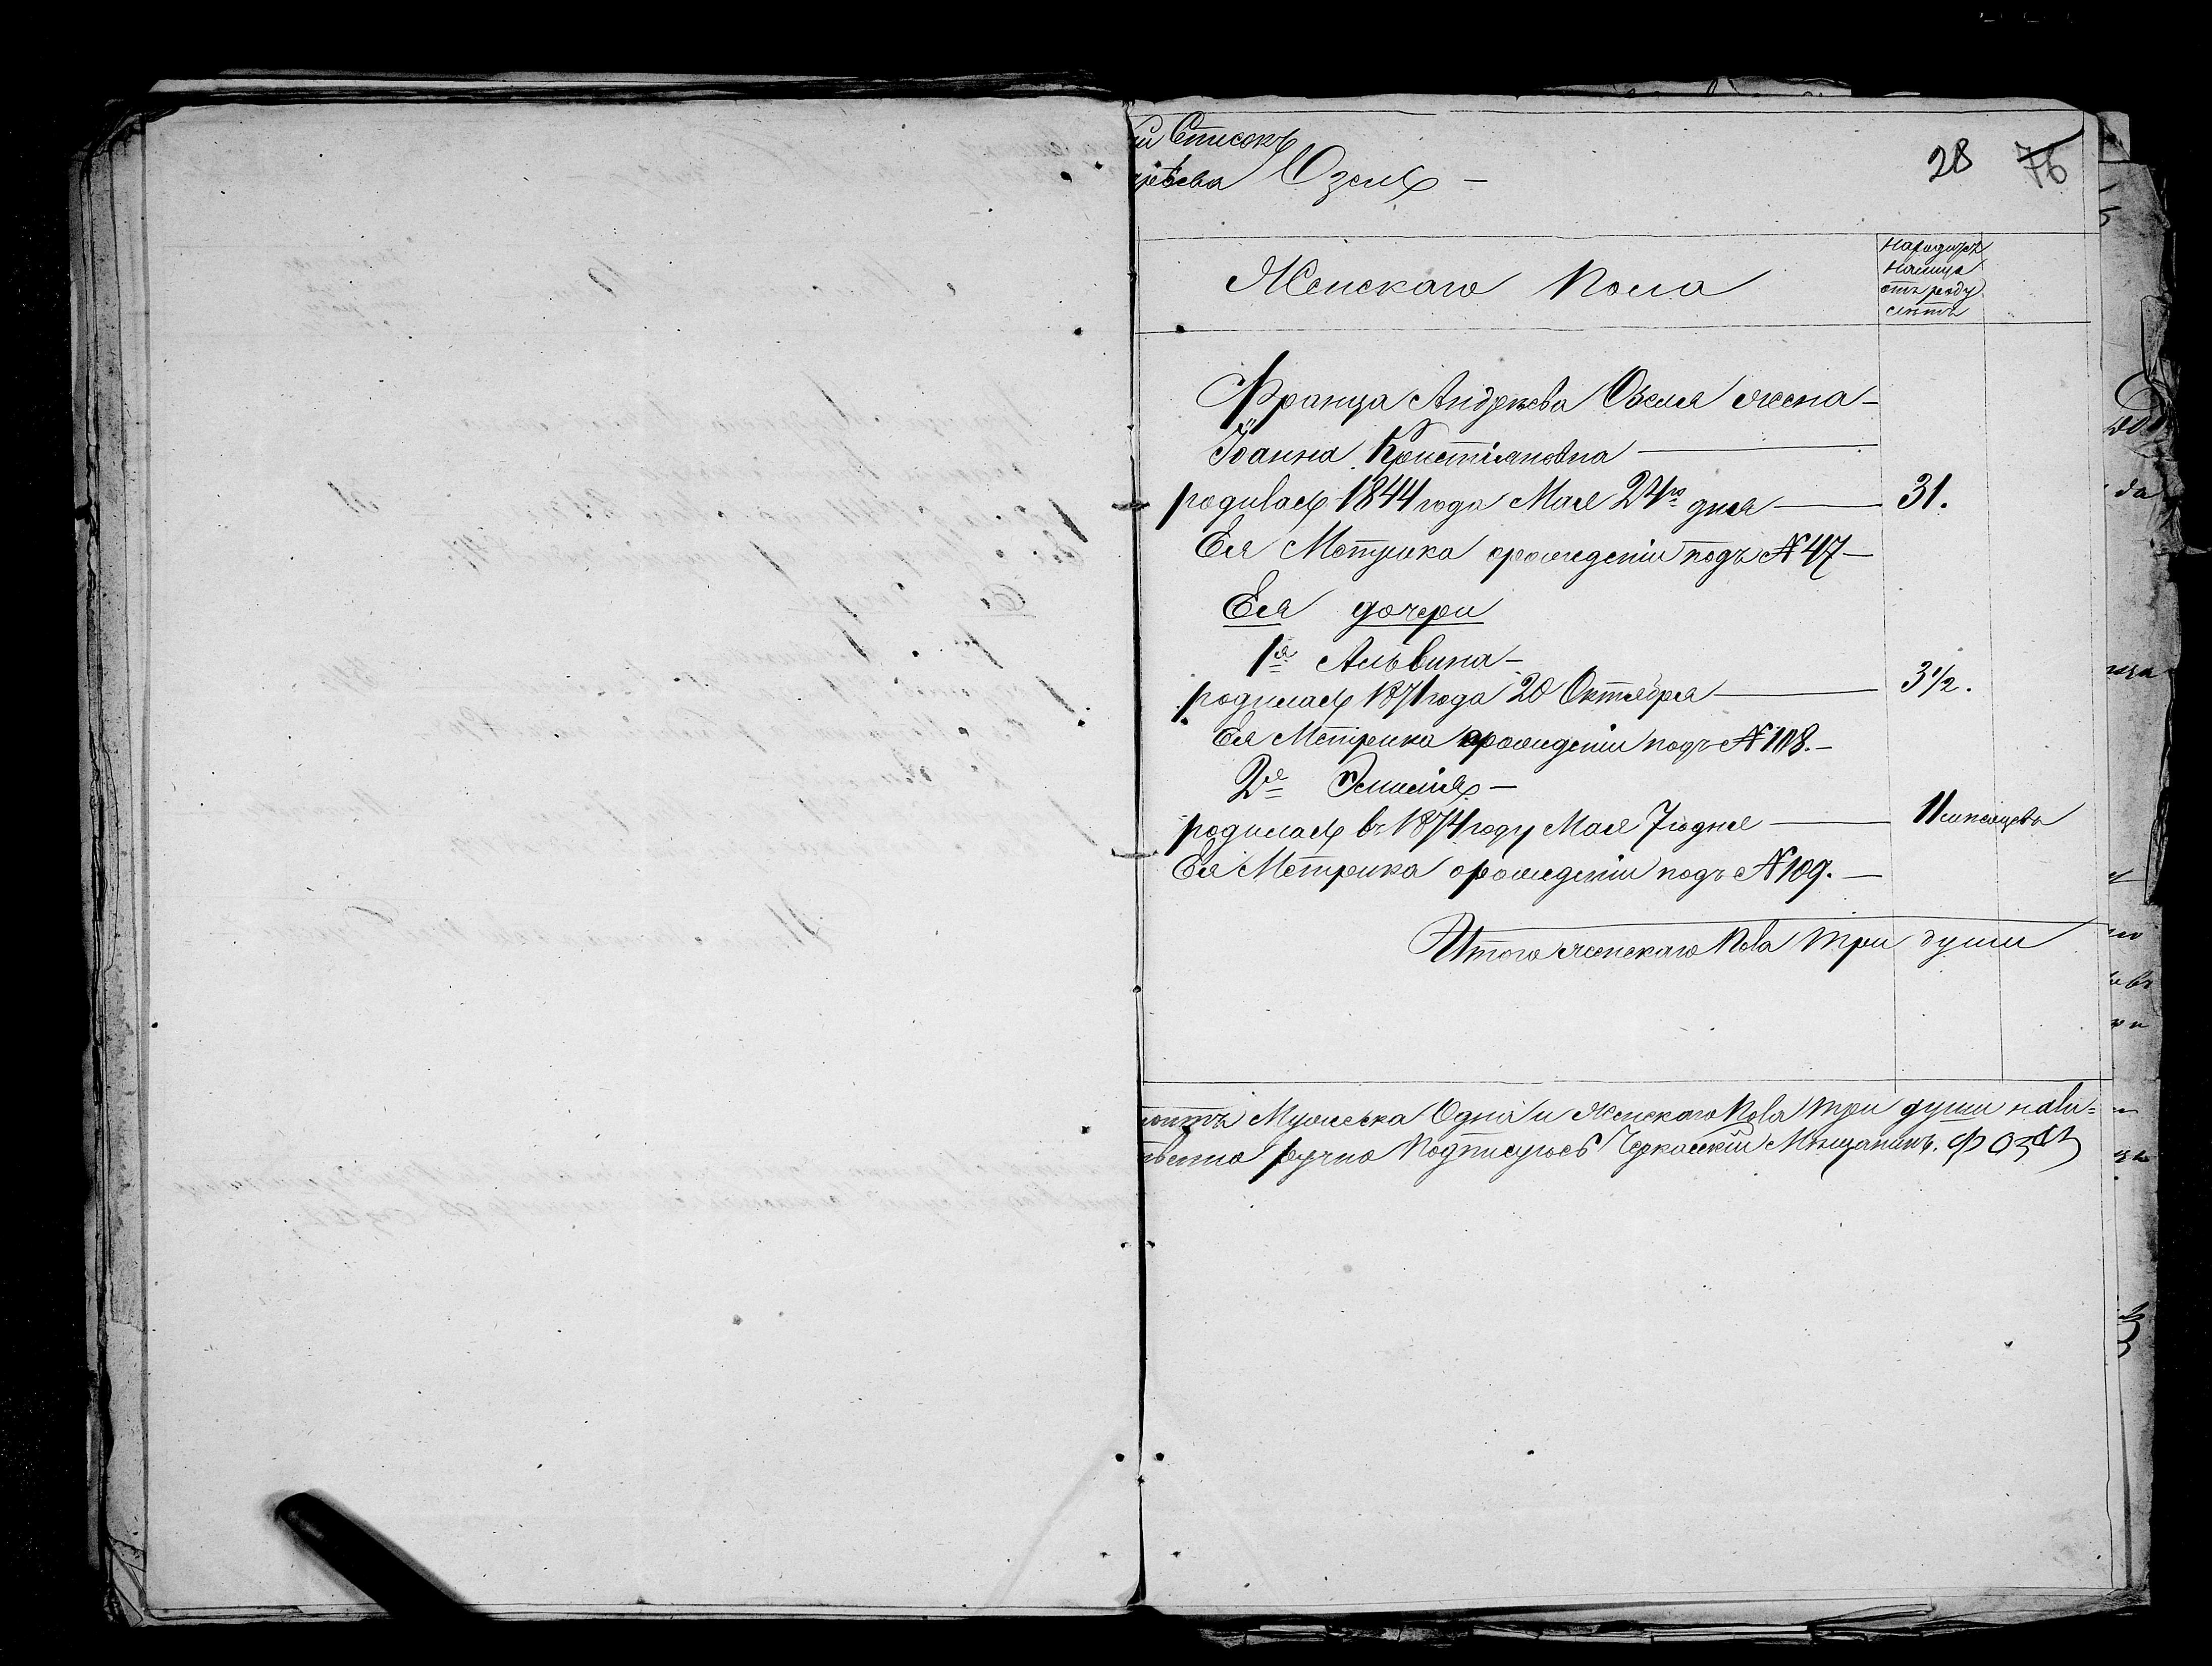 Списокъ
Озель —
28 76
Женскаго Пола
на лицо
отъ роду
лѣтъ
Франца Андрѣева Озеля жена —
Іоанна Кристіяновна
родилась 1844 года Мая 24го дня — 31.
Ея Метрика о рожденіи подъ № 47 —
Ея дочери
1я Альвина —
родилась 1871 года 20 Октября — 3 1/2.
Ея Метрика о рожденіи подъ № 108. —
2я Эмилія —
родилась въ 1874 году Мая 7го дня — 11 мѣсяцевъ
Ея Метрика о рожденіи подъ № 109. —
Итого женскаго Пола три души
Мужеска Одна и Женскаго Пола три души нали=
ручно Подписуюсь Черкаскій Мѣщанинъ. Ф Озель